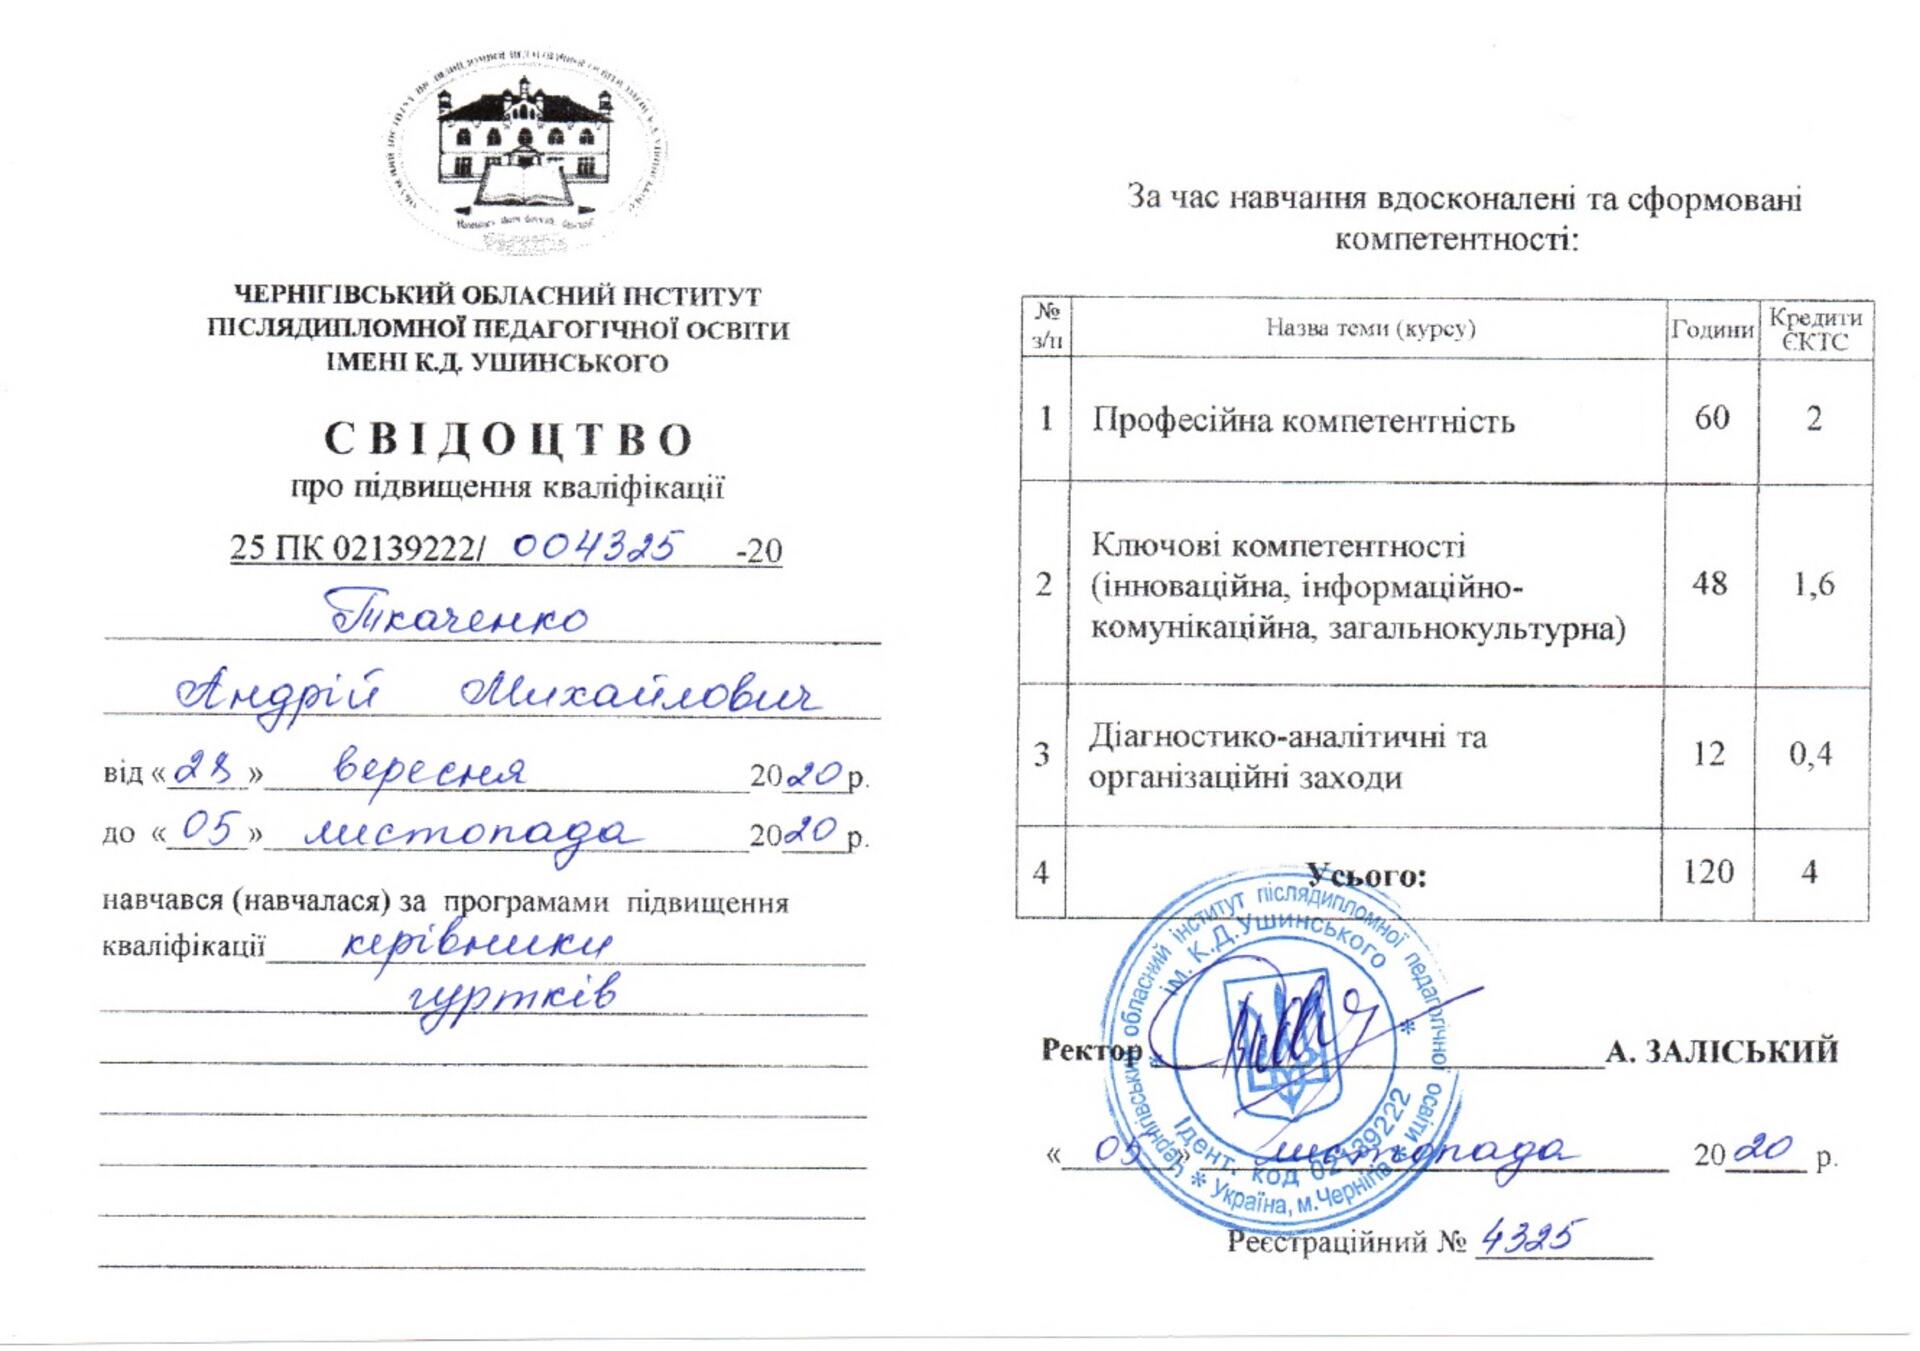 ЧЕРНІГІВСЬКИЙ ОБЛАСНИЙ ІНСТИТУТ
ПІСЛЯДИПЛОМНОЇ ПЕДАГОГІЧНОЇ ОСВІТИ
ІМЕНІ К.Д. УШИНСЬКОГО
СВІДОЦТВО
про підвищення кваліфікації
25 ПК 02139222/ 004325 -20
Ткаченко
Андрій Михайлович
від « 28 » вересня 2020 р.
до « 05 » листопада 2020 р.
навчався (навчалася) за програмами підвищення
кваліфікації керівники
гуртків
За час навчання вдосконалені та сформовані
компетентності:
№ з/п Назва теми (курсу) Години Кредити ЄКТС
1 Професійна компетентність 60 2
2 Ключові компетентності
(інноваційна, інформаційно-
комунікаційна, загальнокультурна) 48 1,6
3 Діагностико-аналітичні та
організаційні заходи 12 0,4
4 Усього: 120 4
Чернігівський обласний інститут післядипломної педагогічної освіти
ім. К.Д.Ушинського
Ідент. код 02139222
* Україна, м.Чернігів *
Ректор А. ЗАЛІСЬКИЙ
« 05 » листопада 2020 р.
Реєстраційний № 4325